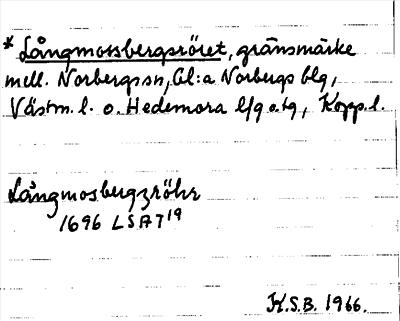 * Långmossbergsröret, gränsmärke
mell. Norbergs sn, Gl:a Norbergs blg,
Västm. l. o. Hedemora lfg o. tg, Kopp. l.
Långmosbergzröhr
1696 LSA T 19
K.S.B. 1966.